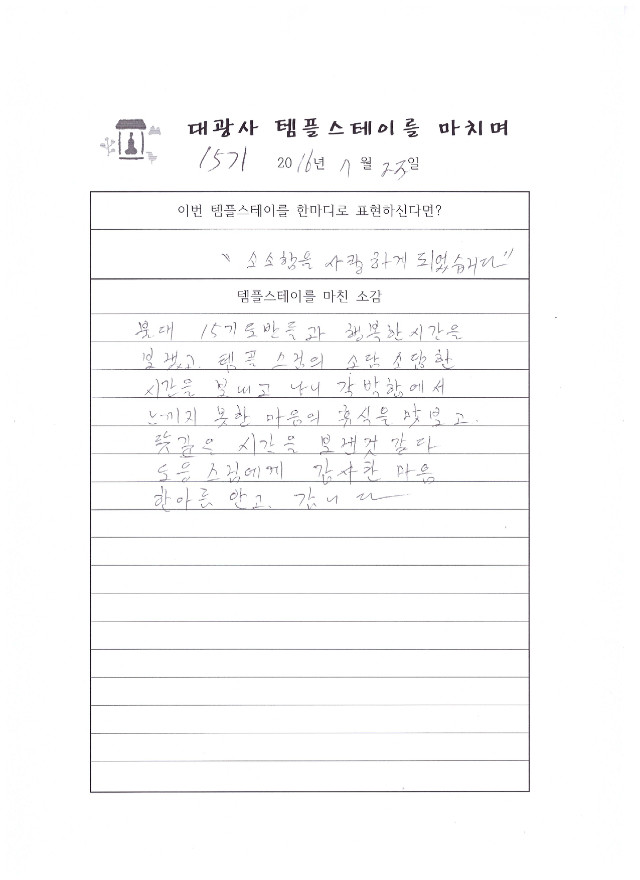 대광사 템플스테이를 마치며
15기 2016년 7월 23일
이번 템플스테이를 한마디로 표현하신다면?
"소소함을 사랑하게 되었습니다"
템플스테이를 마친 소감
붓대 15기 도반들과 행복한 시간을
보냈고. 템플 스님의 소담 소담한
시간을 보내고 나니 각박함에서
느끼지 못한 마음의 휴식을 맛보고.
뜻깊은 시간을 보낸것 같다
도응 스님에게 감사한 마음
한아름 안고. 갑니다